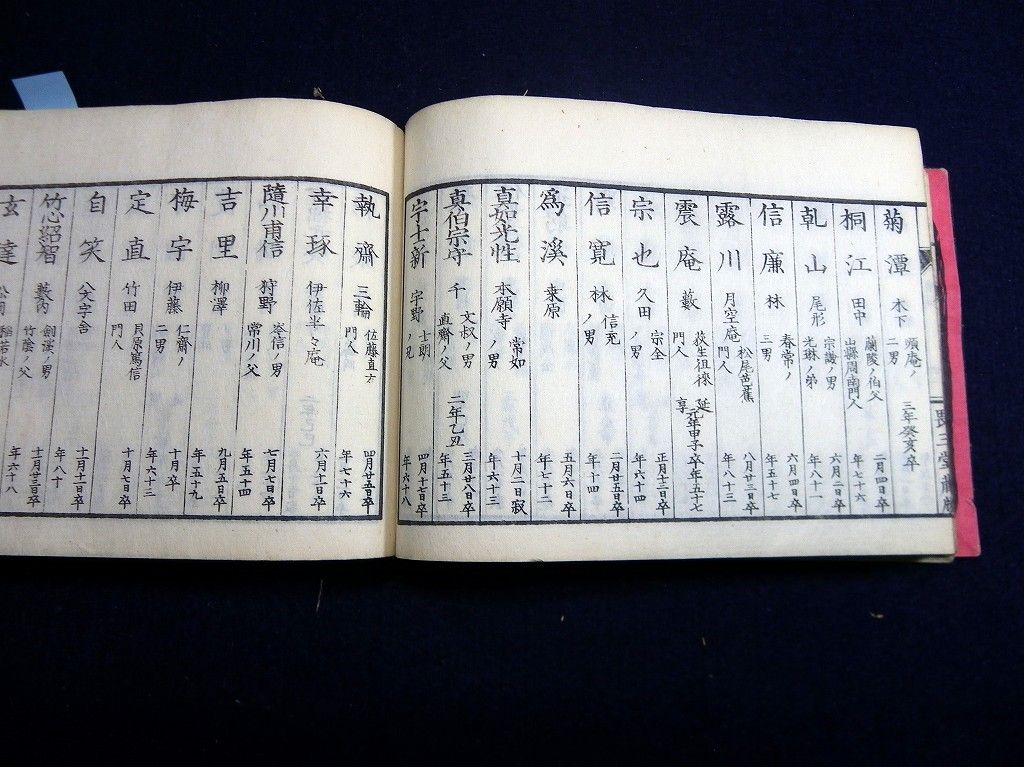 菊潭 木下 順庵ノ二男 三年癸亥卒 二月四日卒
桐江 田中 蘭陵ノ伯父 山縣周南門人 六月十日卒 年七十六
乾山 尾形 宗謙ノ男 光琳ノ弟 六月二日卒 年八十一
信廉 林 春常ノ三男 六月四日卒 年五十七
露川 月空庵 松尾芭蕉門人 八月廿三日卒 年八十三
震庵 藪 荻生徂徠門人 延享元年甲子 卒年五十七
宗也 久田 宗全ノ男 正月十三日卒 年六十四
信寬 林 信充ノ男 二月廿五日卒 年十四
爲溪 桒原 五月六日卒 年七十二
真如光性 本願寺 常如ノ男 十月二日寂 年六十三
真伯宗守 千 文叔ノ男 直齋ノ父 二年乙丑 三月廿八日卒 年五十三
宇士新 宇野 士朗ノ兄 四月十七日卒 年六十八
執齋 三輪 佐藤直方門人 四月廿五日卒 年七十六
幸琢 伊佐半々庵 六月十一日卒
隨川甫信 狩野 岑信ノ男 常川ノ父 七月七日卒 年五十四
吉里 柳澤 九月五日卒 年五十九
梅宇 伊藤 仁齋ノ二男 十月卒 年六十三
定直 竹田 貝原篤信門人 十月七日卒
自笑 八文字舎 十一月十一日卒 年八十
竹心紹智 藪内 劍溪ノ男 竹陰ノ父 十二月廿三日卒
玄達 松岡 稲若水 年六十八